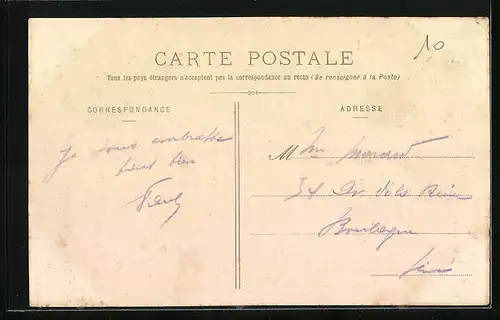 10
CARTE POSTALE
Tous les pays étrangers n'acceptent pas la correspondance au recto (Se renseigner à la Poste)
CORRESPONDANCE
Je vous embrasse
bien
ADRESSE
M
34 de la Reine
Boulogne
Seine